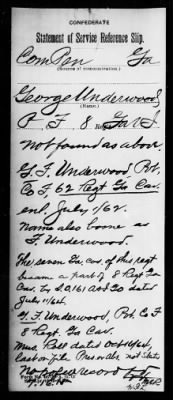 CONFEDERATE
Statement of Service Reference Slip.
Com Pen Ga
(Source of communication.)
George Underwood,
(Name.)
P. F. 8 Reg Ga V I
not found as above.
G. F. Underwood, Pvt.
Co F 62 Regt Ga Cav.
enl July 1/62.
Name also borne as
F. Underwood.
The seven Ga cos. of this regt
became a part of 8 Regt Ga
Cav. by S.O. 161 A&IGO dated
July 11/64.
G. F. Underwood, Pvt. Co F
8 Regt. Ga Cav.
Mus. Roll dated
Last on file Pres or abs not stated
No later record